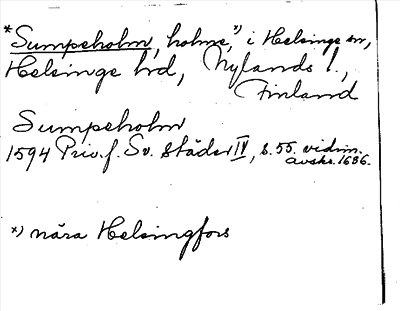 *Sumpeholm, holme,*) i Helsinge sn,
Helsinge hd, Nylands l.,
Finland
Sumpeholm
1594 Priv. f. Sv. städer IV, s. 55. vidim.
avskr. 1636.
*) nära Helsingfors